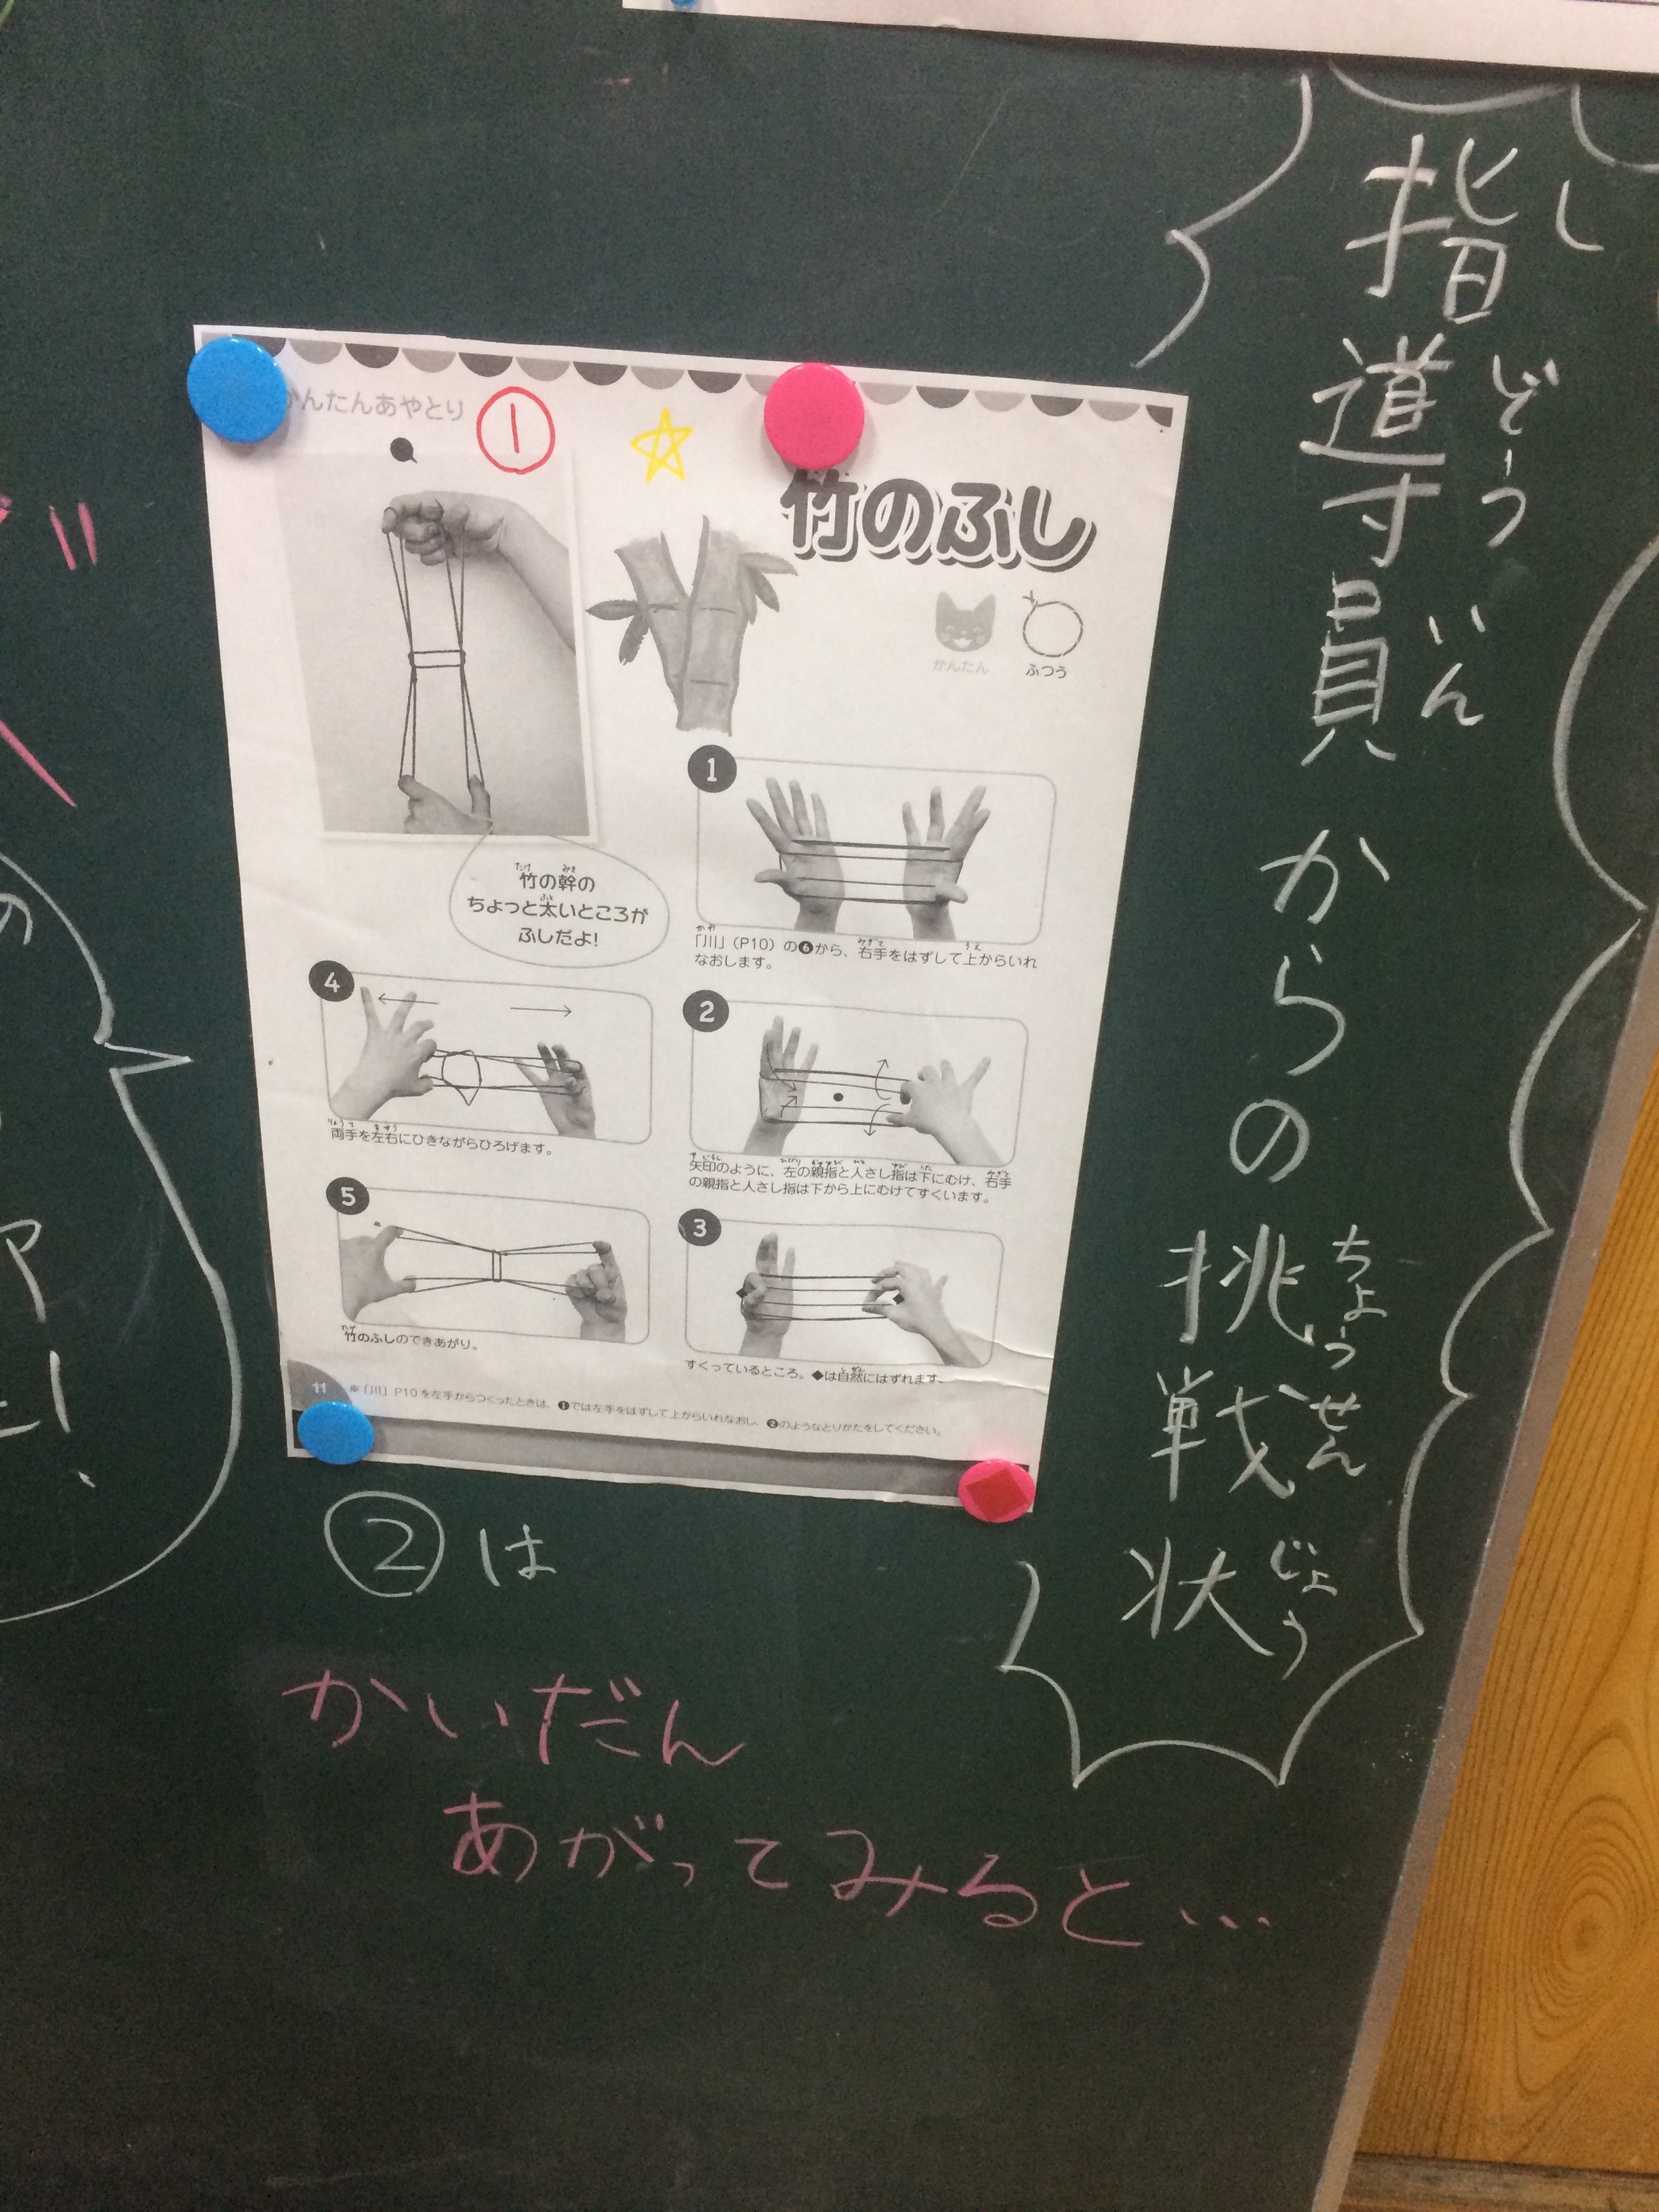 指導員からの挑戦状
しどういん
ちょうせんじょう
んたんあやとり
①
竹のふし
かんたん
ふつう
竹の幹の
ちょっと太いところが
ふしだよ!
1
「川」(P10)の❻から、右手をはずして上からいれ
なおします。
2
矢印のように、左の親指と人さし指は下にむけ、右手
の親指と人さし指は下から上にむけてすくいます。
3
すくっているところ。◆は自然にはずれます。
4
両手を左右にひきながらひろげます。
5
竹のふしのできあがり。
11
※「川」P10を左手からつくったときは、❶では左手をはずして上からいれなおし、❷のようなとりかたをしてください。
②は
かいだん
あがってみると…